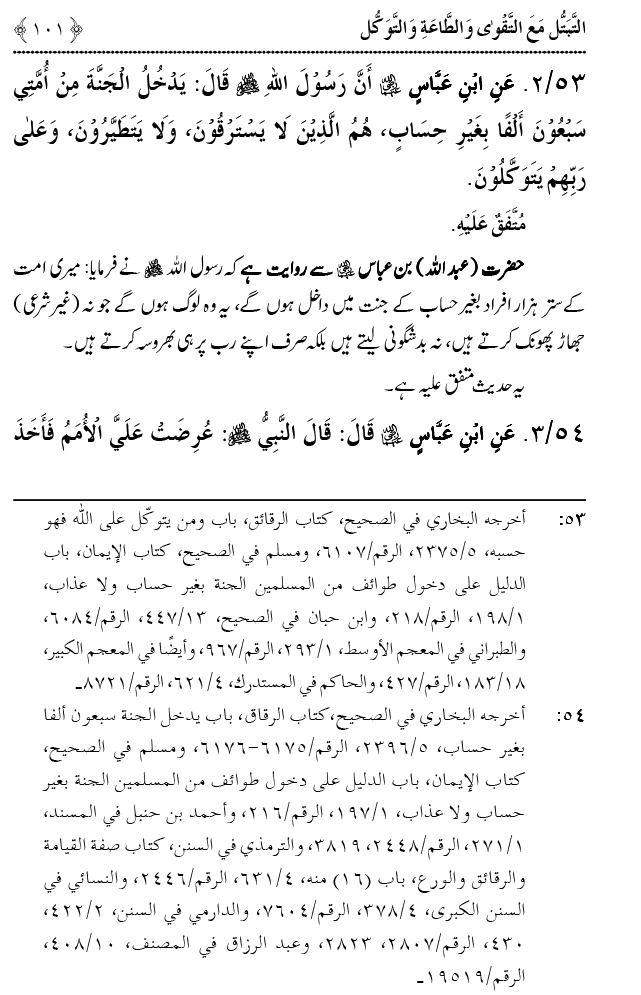 التَّبَتُّل مَعَ التَّقْوٰی وَالطَّاعَةِ وَالتَّوَكُّل ﴿١٠١﴾
٢/٥٣. عَنِ ابْنِ عَبَّاسٍ ﷺ أَنَّ رَسُوْلَ اللهِ ﷺ قَالَ: يَدْخُلُ الْجَنَّةَ مِنْ أُمَّتِي
سَبْعُوْنَ أَلْفًا بِغَيْرِ حِسَابٍ، هُمُ الَّذِيْنَ لَا يَسْتَرْقُوْنَ، وَلَا يَتَطَيَّرُوْنَ، وَعَلٰی
رَبِّهِمْ يَتَوَكَّلُوْنَ.
مُتَّفَقٌ عَلَيْهِ.
حضرت (عبد اللہ) بن عباس سے روایت ہے کہ رسول اللہ ﷺ نے فرمایا: میری امت
کے ستر ہزار افراد بغیر حساب کے جنت میں داخل ہوں گے، یہ وہ لوگ ہوں گے جو نہ (غیر شرعی)
جھاڑ پھونک کرتے ہیں، نہ بدشگونی لیتے ہیں بلکہ صرف اپنے رب پر ہی بھروسہ کرتے ہیں۔
یہ حدیث متفق علیہ ہے۔
٣/٥٤. عَنِ ابْنِ عَبَّاسٍ قَالَ: قَالَ النَّبِيُّ ﷺ: عُرِضَتْ عَلَيَّ الْأُمَمُ فَأَخَذَ
٥٣: أخرجه البخاري في الصحيح، كتاب الرقائق، باب ومن يتوكّل على الله فهو
حسبه، ٢٣٧٥/٥، الرقم/٦١٠٧، ومسلم في الصحيح، كتاب الإيمان، باب
الدليل على دخول طوائف من المسلمين الجنة بغير حساب ولا عذاب،
١٩٨/١، الرقم/٢١٨، وابن حبان في الصحيح، ٤٤٧/١٣، الرقم/٦٠٨٤،
والطبراني في المعجم الأوسط، ٢٩٣/١، الرقم/٩٦٧، وأيضًا في المعجم الكبير،
١٨٣/١٨، الرقم/٤٢٧، والحاكم في المستدرك، ٦٢١/٤، الرقم/٨٧٢١ـ
٥٤: أخرجه البخاري في الصحيح، كتاب الرقاق، باب يدخل الجنة سبعون ألفا
بغير حساب، ٢٣٩٦/٥، الرقم/٦١٧٥-٦١٧٦، ومسلم في الصحيح،
كتاب الإيمان، باب الدليل على دخول طوائف من المسلمين الجنة بغير
حساب ولا عذاب، ١٩٧/١، الرقم/٢١٦، وأحمد بن حنبل في المسند،
٢٧١/١، الرقم/٢٤٤٨، ٣٨١٩، والترمذي في السنن، كتاب صفة القيامة
والرقائق والورع، باب (١٦) منه، ٦٣١/٤، الرقم/٢٤٤٦، والنسائي في
السنن الكبرى، ٣٧٨/٤، الرقم/٧٦٠٤، والدارمي في السنن، ٤٢٢/٢،
٤٣٠، الرقم/٢٨٠٧، ٢٨٢٣، وعبد الرزاق في المصنف، ٤٠٨/١٠،
الرقم/١٩٥١٩ـ